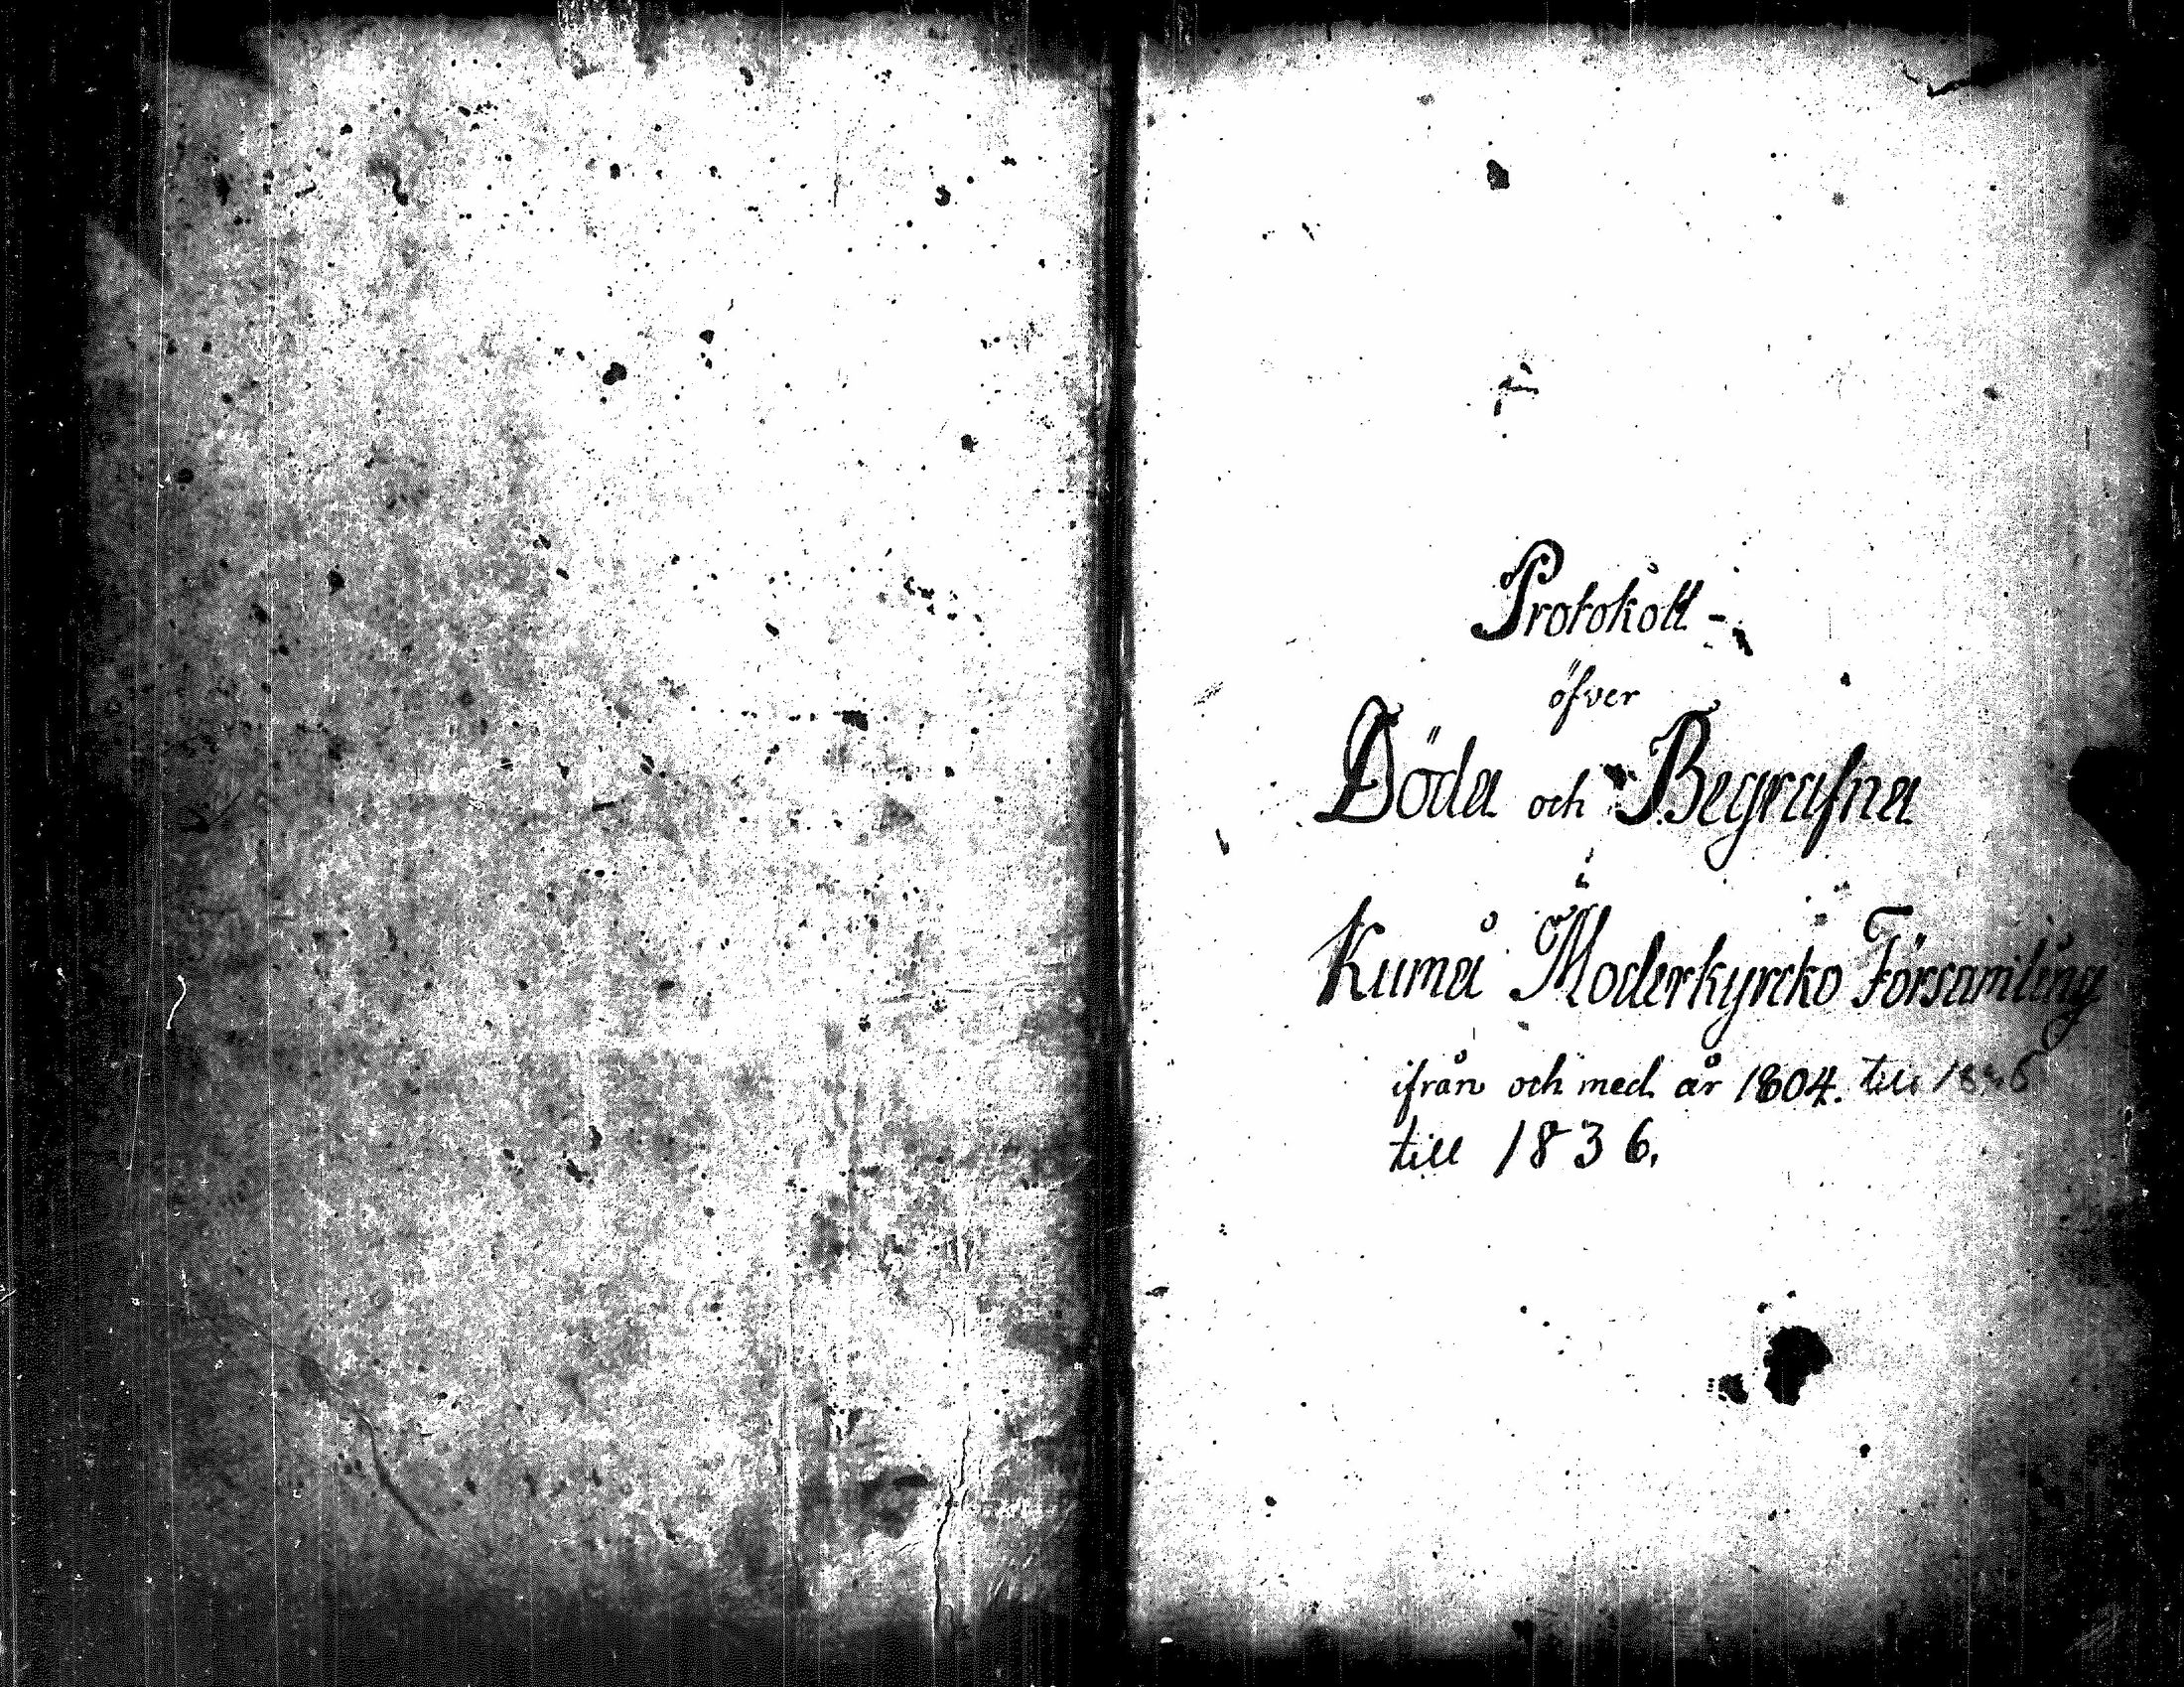 Protokoll -
öfver
Döda och Begrafna
i
Kumå Moderkyrcko Församling
ifrån och med år 1804. till
till 1836.